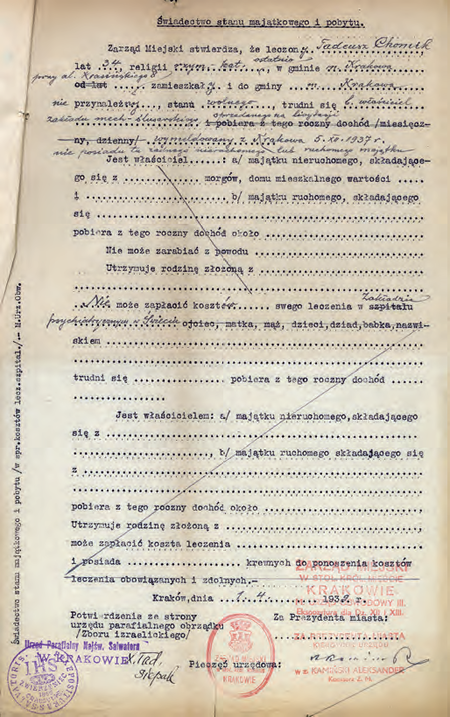 Świadectwo stanu majątkowego i pobytu.
Zarząd Miejski stwierdza, że leczony. Tadeusz Chomik
ostatnio
lat .34., religii rzym. kat. , w gminie m. Krakowa
przy al. Krasińskiego 8
od lat ...., zamieszkał y. i do gminy ... m. Krakowa
nie przynależny., stanu wolnego, trudni się b. właściciel
zakładu mech. ślusarskiego
i pobiera z tego roczny dochód /miesięcz-
ny, dzienny/- wymeldowany z Krakowa 5.XI.1937 r.
nie posiada tu żadnego nieruchomego lub ruchomego majątku
Jest właściciel......: a/ majątku nieruchomego, składające-
go się z ............ morgów, domu mieszkalnego wartości
i ........................ b/ majątku ruchomego, składającego
się ............................................
pobiera z tego roczny dochód około ....................
Nie może zarabiać z powodu ....................
Utrzymuje rodzinę złożoną z ....................
Zakładzie
..Nie. może zapłacić kosztów....... swego leczenia w szpitalu
psychiatrycznym w ojciec, matka, mąż, dzieci, dziad, babka, nazwi-
skiem ............................................
trudni się .............. pobiera z tego roczny dochód ......
Jest właścicielem: a/ majątku nieruchomego, składającego
się z ............................................
...................., b/ majątku ruchomego składającego się
z ............................................
pobiera z tego roczny dochód około ....................
Utrzymuje rodzinę złożoną z ....................
może zapłacić koszta leczenia ....................
i posiada .................... krewnych do ponoszenia kosztów
leczenia obowiązanych i zdolnych.-
ZARZĄD MIEJSKI
W STOŁ. KRÓL. MIEŚCIE
KRAKOWIE
Kraków, dnia ..1.4........ 193
Ekspozytura dla Dz. XII i XIII.
Potwierdzenie ze strony
urzędu parafialnego obrządku
/Zboru izraelickiego/
Za Prezydenta miasta:
ZA PREZYDENTA MIASTA
KIEROWNIK URZĘDU
Urząd Parafialny Najśw. Salwatora
W KRAKOWIE
IHS
X. Tad.
Pieczęć urzędowa:
KRAKOWIE
KAMIŃSKI ALEKSANDER
Świadectwo stanu majątkowego i pobytu /w spr. kosztów lecz. szpital./.- M.Urz.Obw.